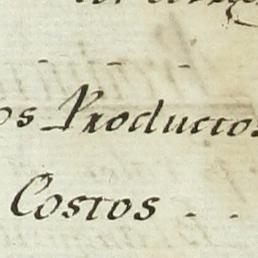 os Productos
Costos . .